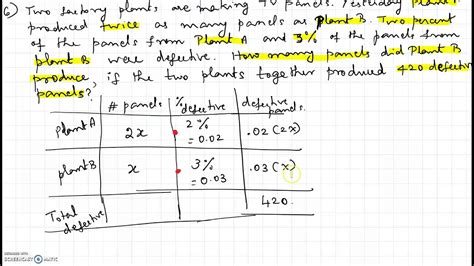 6) Two factory plants are making TV panels. Yesterday Plant
produced twice as many panels as Plant B. Two percent
of the panels from Plant A and 3% of the panels from
plant B were defective. How many panels did Plant B
produce if the two plants together produced 420 defective
panels?
# panels % defective defective panels
Plant A 2x 2% = 0.02 .02(2x)
plant B x 3% = 0.03 .03(x)
Total defective 420
SCREENCAST MATIC